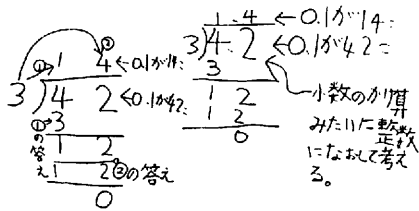 ② 
① 1 4 ←0.1が14コ
3)4 2 ←0.1が42コ
①→3
の答え
1 2
1 2 ②の答え
0
1.4 ←0.1が14コ
3)4.2 ←0.1が42コ
3
1 2
1 2
0
小数のかけ算
みたいに整数
になおして考え
る。